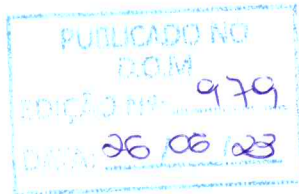 PUBLICADO NO
D.O.M
EDIÇÃO Nº: 979
DATA: 26/06/23